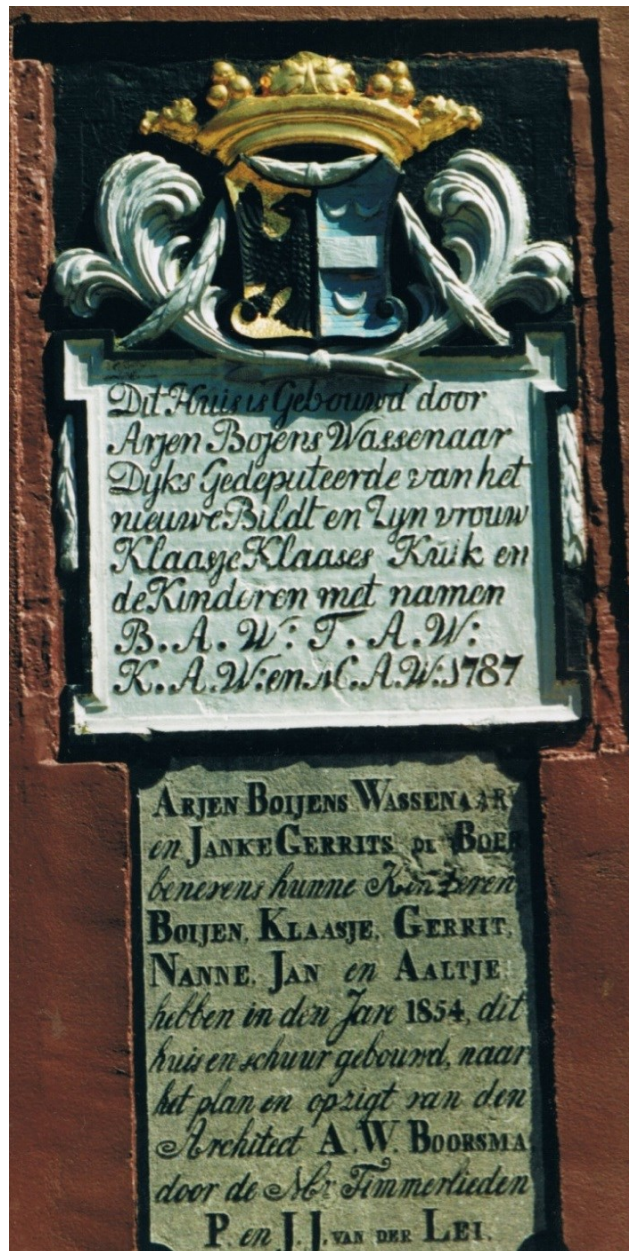 Dit Huis is Gebouwd door
Arjen Bojens Wassenaar
Dyks Gedeputeerde van het
nieuwe Bildt en Zyn vrouw
Klaasje Klaases Kuik en
de Kinderen met namen
B. A. W: T. A. W:
K. A. W: en N C. A. W: 1787
ARJEN BOIJENS WASSENAAR
en JANKE GERRITS DE BOER
benevens hunne Kinderen,
BOIJEN, KLAASJE, GERRIT,
NANNE, JAN en AALTJE,
hebben in den Jare 1854, dit
huis en schuur gebouwd, naar
het plan en opzigt van den
Architect A. W. BOORSMA,
door de Mr Timmerlieden
P. en J. J. VAN DER LEI.